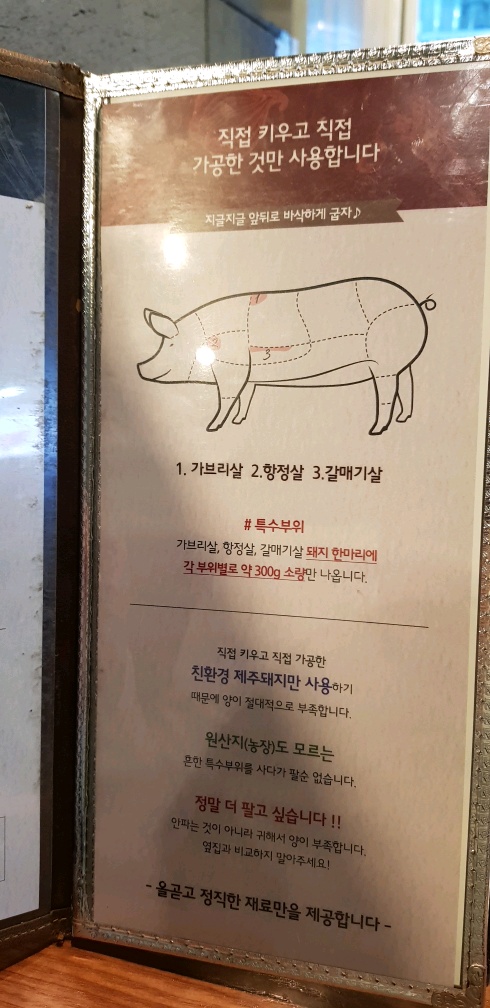 직접 키우고 직접
가공한 것만 사용합니다
지글지글 앞뒤로 바삭하게 굽자♪
2
3
1. 가브리살 2.항정살 3.갈매기살
# 특수부위
가브리살, 항정살, 갈매기살 돼지 한마리에
각 부위별로 약 300g 소량만 나옵니다.
직접 키우고 직접 가공한
친환경 제주돼지만 사용하기
때문에 양이 절대적으로 부족합니다.
원산지(농장)도 모르는
흔한 특수부위를 사다가 팔순 없습니다.
정말 더 팔고 싶습니다 !!
안파는 것이 아니라 귀해서 양이 부족합니다.
옆집과 비교하지 말아주세요!
- 올곧고 정직한 재료만을 제공합니다 -